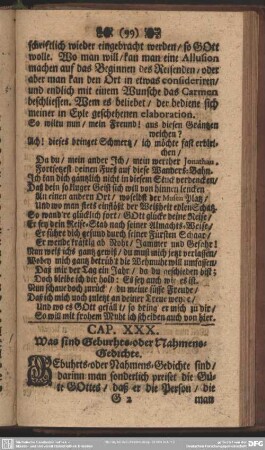 (99)
schrifftlich wieder eingebracht werden / so GOtt
wolle. Wo man will / kan man eine Allusion
machen auf das Beginnen des Reisenden / oder
aber man kan den Ort in etwas consideriren /
und endlich mit einem Wunsche das Carmen
beschliessen. Wem es beliebet / der bediene sich
meiner in Eyle geschehenen elaboration.
So wiltu nun / mein Freund! aus diesen Gräntzen
weichen?
Ach! dieses bringet Schmertz / ich möchte fast
chen /
Da du / mein ander Ich / mein werther Jonathan,
Fortsetzest deinen Fuß auf diese Wanders-Bahn.
Ich kan dich gäntzlich nicht in diesem verdencken /
Daß dein so kluger Geist sich will von hinnen lencken
An einen andern Ort / woselbst der Musen Platz /
Und wo man stets einflößt der Weißheit edlen Schatz.
So wand're glücklich fort / GOtt glücke deine Reise /
Er sey dein Reise-Stab nach seiner Allmachts-Weise /
Er führe dich gesund durch seiner Fürsten Schaar /
Er wende kräfftig ab Noht / Jammer und Gefahr!
Nun weiß nicht gantz gewiß / du must mich jetzt verlassen /
Wobey mich gantz betrübt die Wehmuht will umfassen /
Daß mir der Tag ein Jahr / da du geschieden bist;
Doch bleibe ich dir hold: Es sey auch wie es ist.
Nun schaue doch zurück / du meine süsse Freude /
Das ich mich noch zuletzt an deiner Treue weyde /
Und wo es GOtt gefällt / so bring er mich zu dir /
So will mit frohem Muht ich scheiden auch von hier.
CAP. XXX.
Was sind Geburhts-oder Nahmens-
Gedichte.
GEbuhrts-oder Nahmens-Gedichte sind /
darinn man sonderlich preiset die Gü-
te GOttes / daß er die Person / die
G 2 man